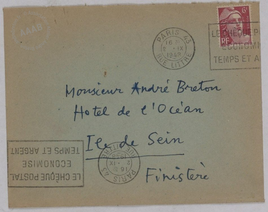 PARIS 41
LE CHÈQUE P
ECONOMI
TEMPS ET A
Monsieur André Breton
Hotel de l'Océan
Ile de Sein
Finistère
LE CHÈQUE POSTAL
ECONOMISE
TEMPS ET ARGENT
PARIS 41